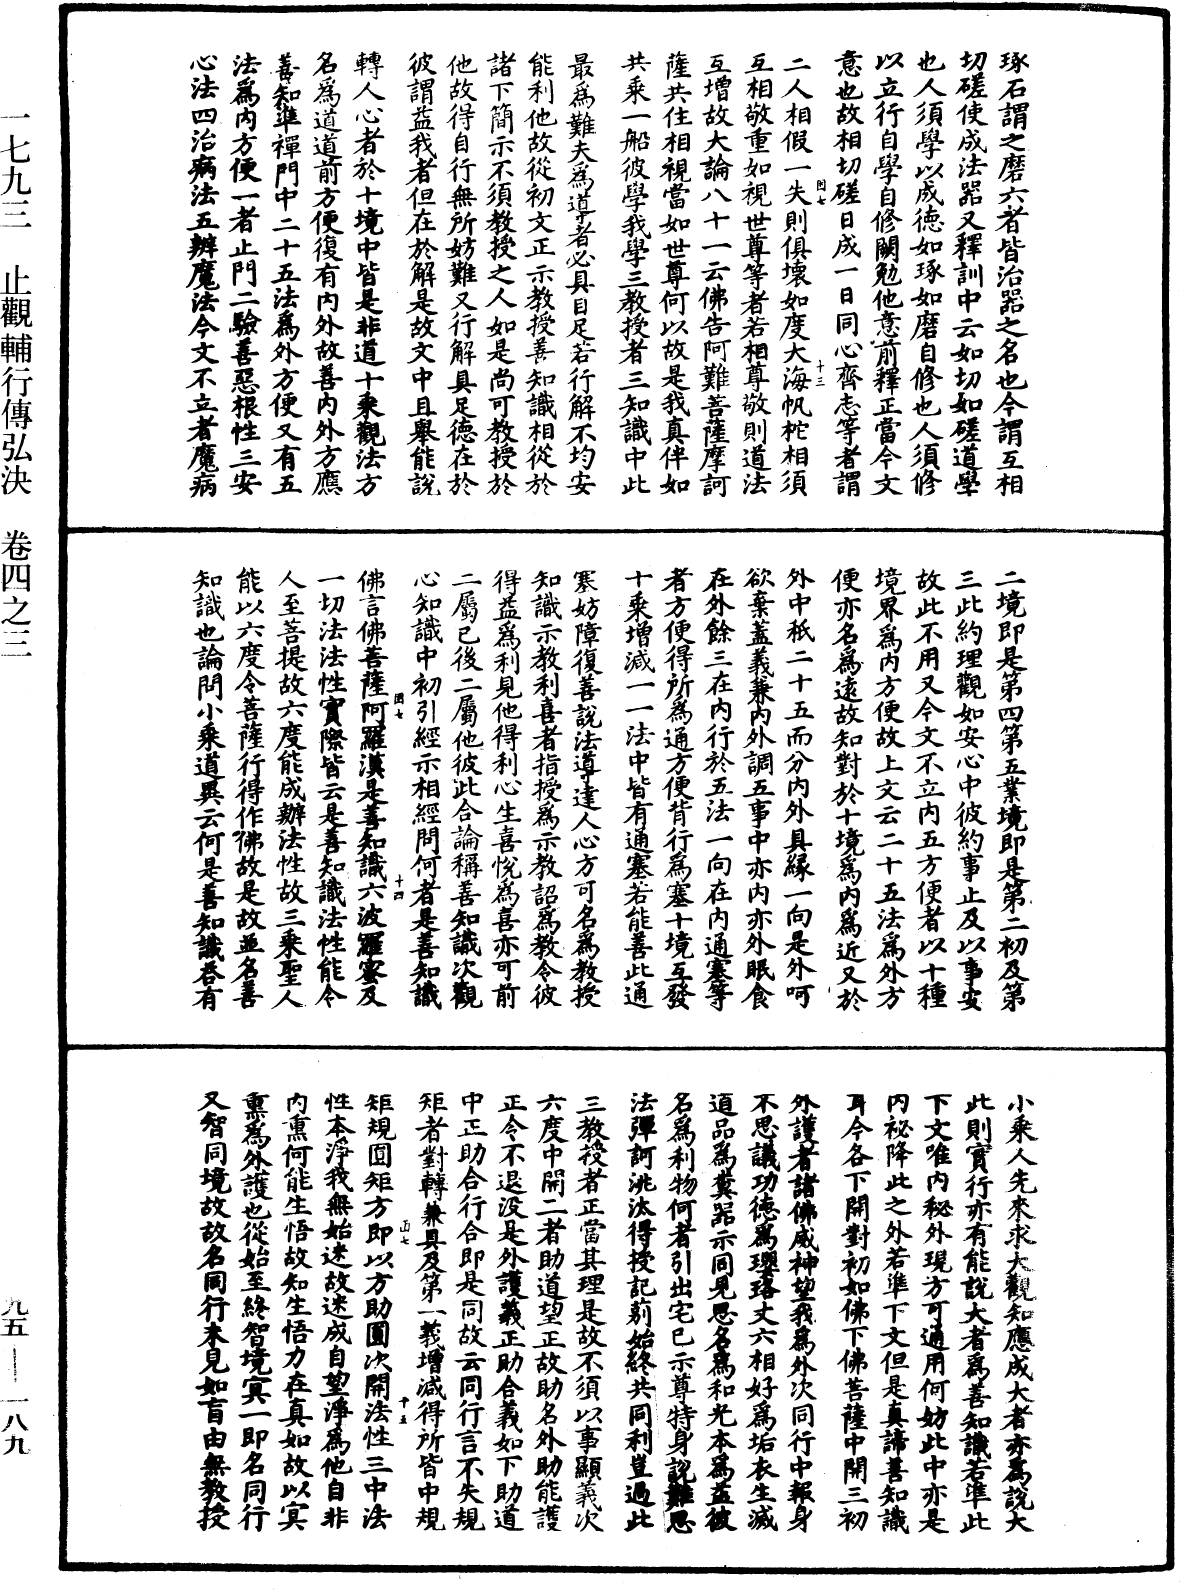 琢石謂之磨六者皆治器之名也今謂互相
切磋使成法器又釋訓中云如切如磋道學
也人須學以成德如琢如磨自修也人須修
以立行自學自修闕勉他意前釋正當今文
意也故相切磋日成一日同心齊志等者謂
二人相假一失則俱壞如度大海帆柁相須
互相敬重如視世尊等者若相尊敬則道法
互增故大論八十一云佛告阿難菩薩摩訶
薩共住相視當如世尊何以故是我真伴如
共乘一船彼學我學三教授者三知識中此
最為難夫為導者必具目足若行解不均安
能利他故從初文正示教授善知識相從於
諸下簡示不須教授之人如是尚可教授於
他故得自行無所妨難又行解具足德在於
彼謂益我者但在於解是故文中且舉能說
轉人心者於十境中皆是非道十乘觀法方
名為道道前方便復有內外故善內外方應
善知準禪門中二十五法為外方便又有五
法為內方便一者止門二驗善惡根性三安
心法四治病法五辨魔法今文不立者魔病
二境即是第四第五業境即是第二初及第
三此約理觀如安心中彼約事止及以事安
故此不用又今文不立內五方便者以十種
境界為內方便故上文云二十五法為外方
便亦名為遠故知對於十境為內為近又於
外中秖二十五而分內外具緣一向是外呵
欲棄蓋義兼內外調五事中亦內亦外眠食
在外餘三在內行於五法一向在內通塞等
者方便得所為通方便背行為塞十境互發
十乘增減一一法中皆有通塞若能善此通
塞妨障復善說法導達人心方可名為教授
知識示教利喜者指授為示教詔為教令彼
得益為利見他得利心生喜悅為喜亦可前
二屬己後二屬他彼此合論稱善知識次觀
心知識中初引經示相經問何者是善知識
佛言佛菩薩阿羅漢是善知識六波羅蜜及
一切法法性實際皆云是善知識法性能令
人至菩提故六度能成辦法性故三乘聖人
能以六度令菩薩行得作佛故是故並名善
知識也論問小乘道異云何是善知識答有
小乘人先來求大觀知應成大者亦為說大
此則實行亦有能說大者為善知識若準此
下文唯內秘外現方可通用何妨此中亦是
內祕降此之外若準下文但是真諦善知識
耳今各下開對初如佛下佛菩薩中開三初
外護者諸佛威神望我為外次同行中報身
不思議功德為瓔珞丈六相好為垢衣生滅
道品為糞器示同見思名為和光本為益彼
名為利物何者引出宅已示尊特身說難思
法彈訶洮汰得授記莂始終共同利豈過此
三教授者正當其理是故不須以事顯義次
六度中開二者助道望正故助名外助能護
正令不退没是外護義正助合義如下助道
中正助合行合即是同故云同行言不失規
矩者對轉兼具及第一義增減得所皆中規
矩規圓矩方即以方助圓次開法性三中法
性本淨我無始迷故迷成自望淨為他自非
內熏何能生悟故知生悟力在真如故以冥
熏為外護也從始至終智境冥一即名同行
又智同境故故名同行未見如盲由無教授
一七九三　止觀輔行傳弘決　卷四之三
九五—一八九